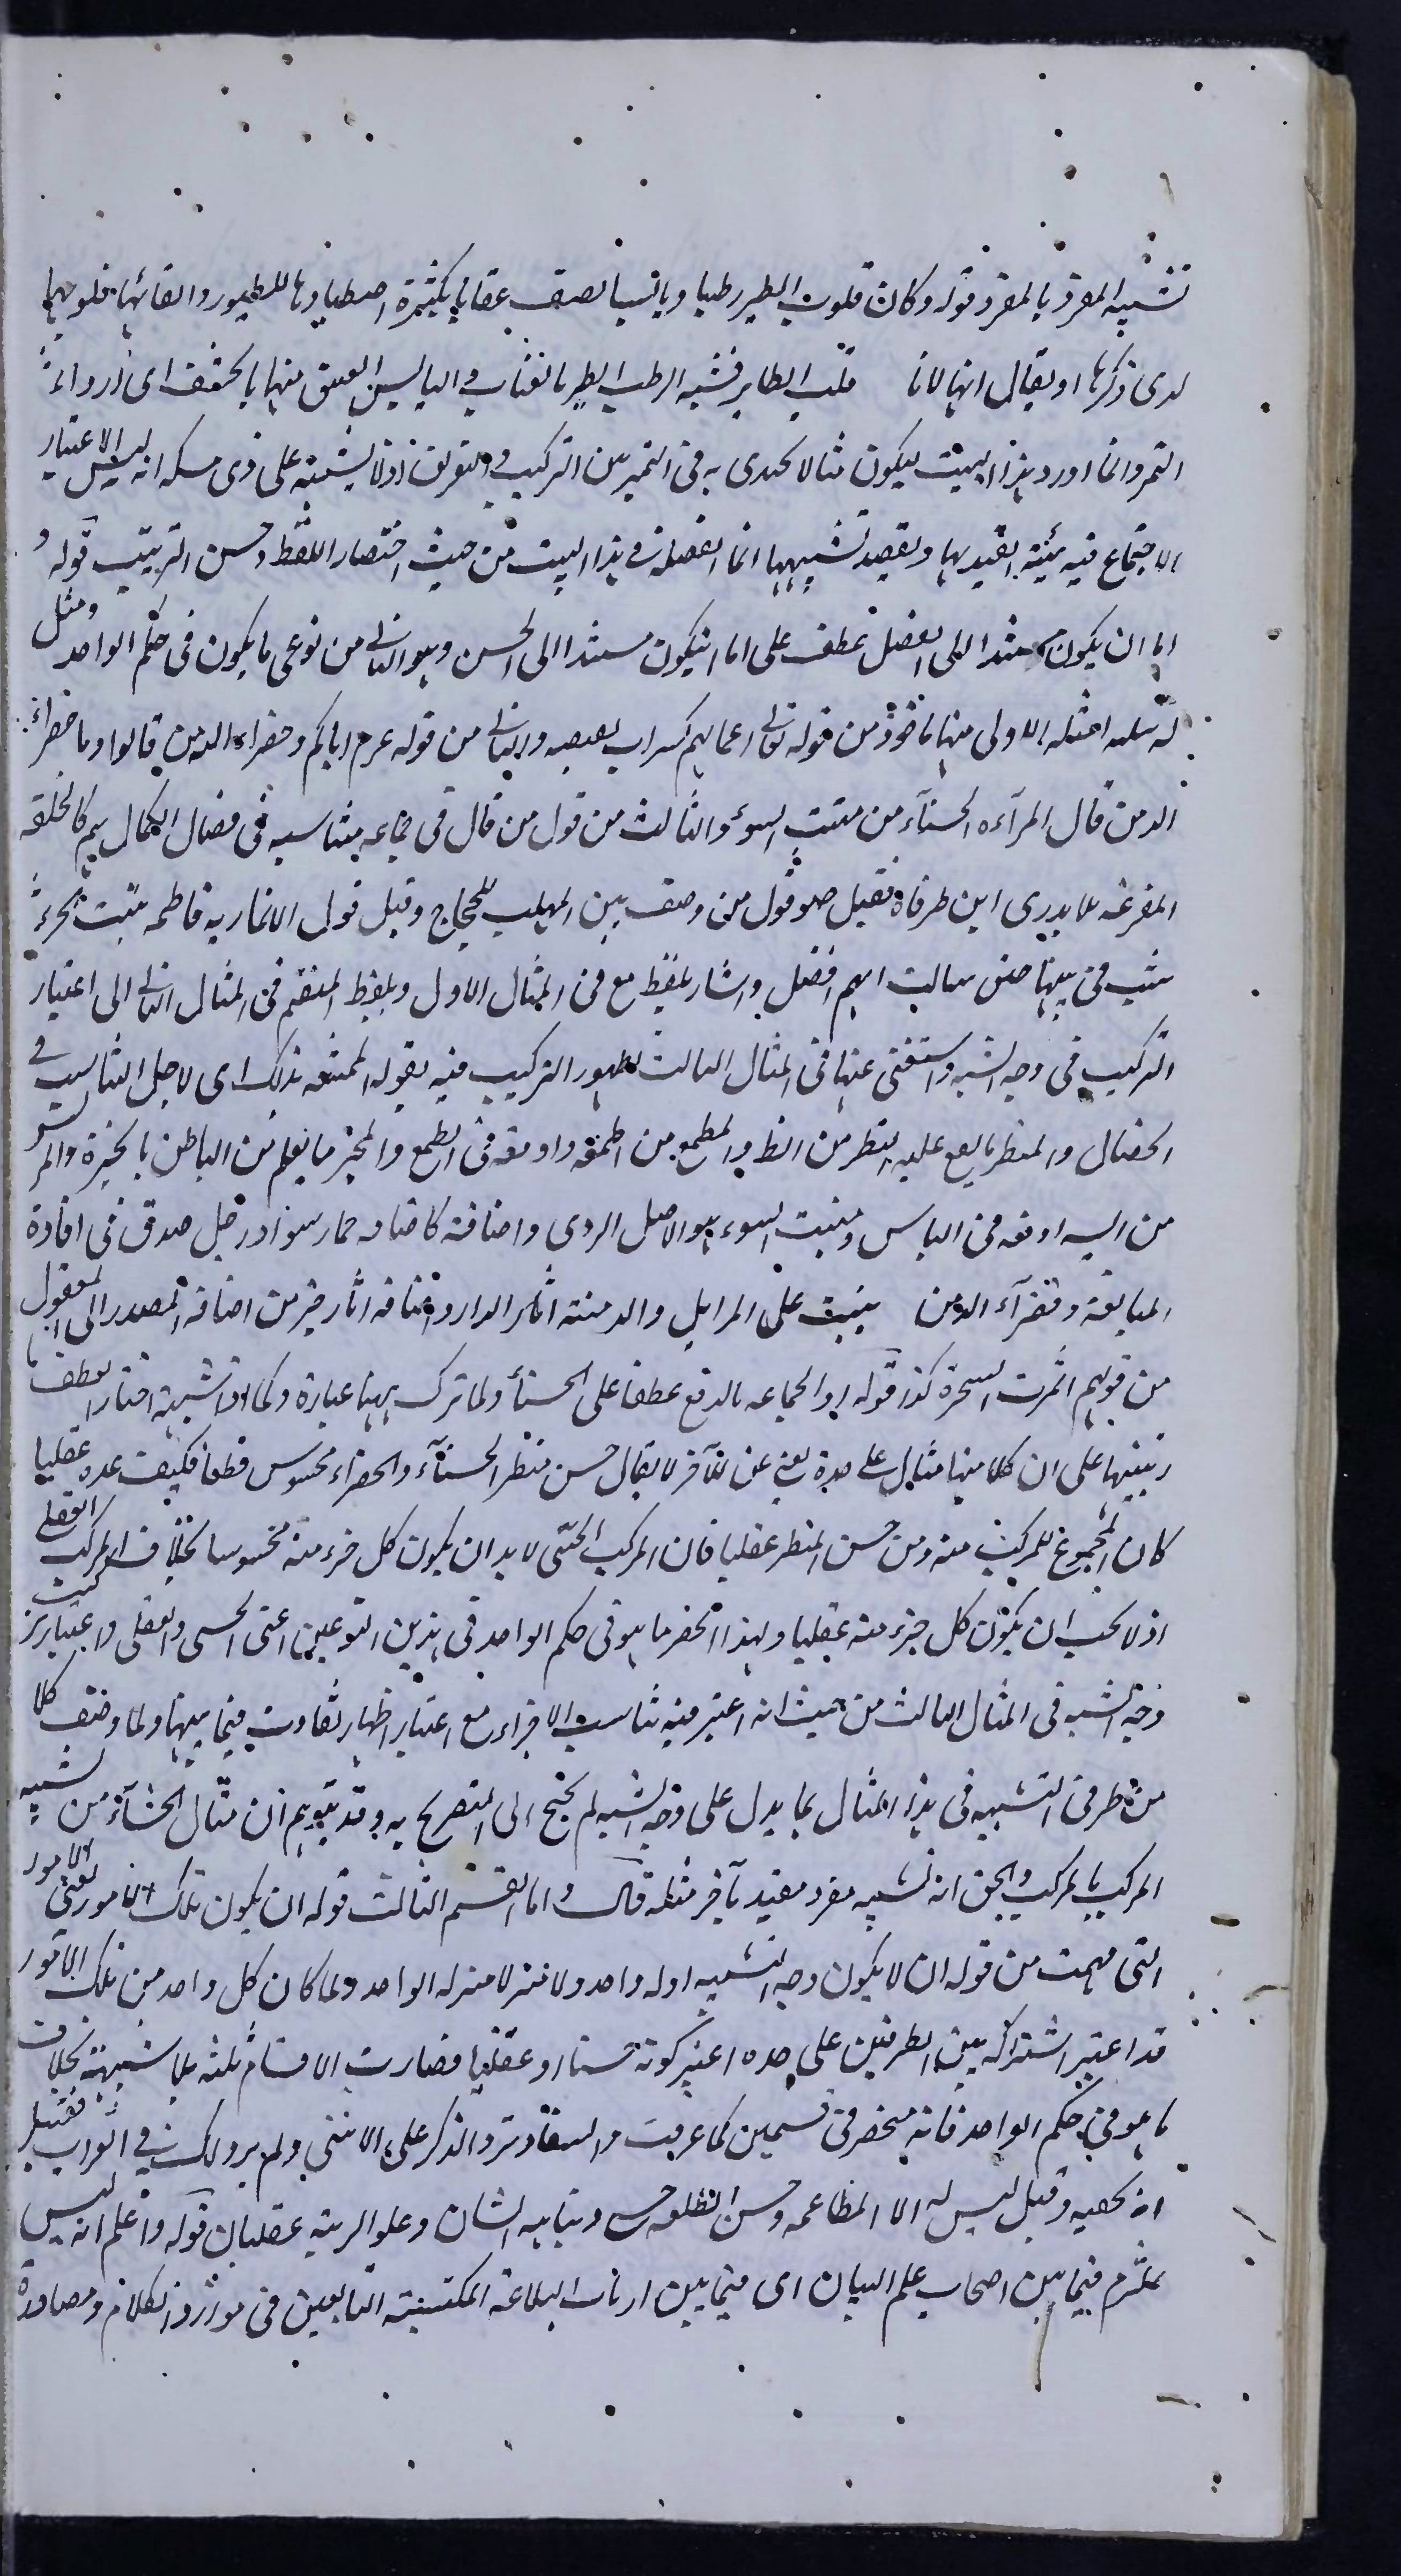 تشبيه المفرد بالمفرد قوله وكان قلوب الطير رطبا ويابسا يصف عقابا بكثرة اصطيادها للطيور وابقائها قلوبها
لدى وكرها او يقال انها لا تأكل قلب الطاير فشبه الرطب الطري بالعناب واليابس العتيق منها بالحشف اى اردأ
التمر وانما اورد هذا البيت ليكون مثالا يحتذى به فى التميز بين التركيب والتفريق اذ لا يشتبه على ذى مسكه انه ليس الاعتبار
الاجتماع فيه هيئة يعتد بها ويقصد تشبيهها انما الفضيلة فى هذا البيت من حيث اختصار اللفظ وحسن الترتيب قوله و
اما ان يكون مستندا الى العقل عطف على اما ان يكون مستندا الى الحس وهو الثانى من نوعى ما يكون فى حكم الواحد ومثل
له بثلثه امثله الاولى منها ماخوذ من قوله تعالى اعمالهم كسراب بقيعه والثانى من قوله عم اياكم وخضراء الدمن قالوا وما خضراء
الدمن قال المرآءه الحسنآء من منبت السوء والثالث من قول من قال فى جماعه متناسبه فى خصال الكمال هم كالحلقه
المفرغه لا يدرى اين طرفاه فقيل هو قول من وصف بنى المهلب للحجاج وقيل قول الانماريه فاطمه بنت الخرشب
فى بنيها حتى سالت ايهم افضل واشار بلفظ مع فى المثال الاول وبلفظ المنضم فى المثال الثانى الى اعتبار
التركيب فى وجه الشبه واستغنى عنها فى المثال الثالث لظهور التركيب فيه بقوله الممتنعه بذلك اى لاجل التناسب فى
الخصال والمنظر ما يقع عليه النظر من الظ والمطمع من اطمعه واوقعه فى الطمع والمخبر ما يعلم من الباطن بالخبرة والموئس
من ايسه اوقعه فى الياس ومنبت السوء هو الاصل الردى واضافته كاضافه حمار سوء ورجل صدق فى افادة
المبالغة وخضرآء الدمن ينبت على المزابل والدمنة آثار الدار واضافه اثار خير من اضافه المصدر الى المفعول
من قولهم اثمرت الشجرة كذا قوله او الجماعه بالرفع عطفا على الحسنآء ولما ترك ههنا عبارة وكما اذا شبهت اختار العطف با
وتنبيها على ان كلا منها مثال على حدة يغنى عن الآخر لا يقال حسن منظر الحسنآء والخضراء محسوس قطعا فكيف عده عقليا
كان المجموع المركب منه ومن حسن المنظر عقليا فان المركب الحسى لا بد ان يكون كل جزء منه محسوسا بخلاف المركب العقلى
اذ لا يجب ان يكون كل جزء منه عقليا ولهذا انحصر ما هو فى حكم الواحد فى هذين النوعين اعنى الحسى والعقلى واعتبار تركيب
وجه الشبه فى المثال الثالث من حيث انه اعتبر فيه تناسب الاجزاء مع اعتبار اظهار تفاوت فيما بينها ولما وصف كلا
من طرفى التشبيه فى هذه المثال بما يدل على وجه الشبه لم يحتج الى التصريح به وقد يتوهم ان مثال الحسنآء من تشبيه
المركب بالمركب والحق انه تشبيه مفرد مقيد بآخر مثله قال واما القسم الثالث قوله ان يكون تلك الامور يعنى الامور
التى فهمت من قوله ان لا يكون وجه التشبيه اوله واحد ولا منزلا منزله الواحد ولما كان كل واحد من تلك الامور
قد اعتبر اشتراكه بين الطرفين على حده اعتبر كونه حسيا او عقليا فصارت الاقسام ثلثه بلا شبهة بخلاف
ما هو فى حكم الواحد فانه منحصر فى قسمين كما عرفت والسفاد نزو الذكر على الانثى ولم يرو ذلك فى الغراب فقيل
انه يخفيه وقيل ليس له الا المطاعمه وحسن الطلعه حسى ونباهه الشان وعلو الرتبه عقليان قوله واعلم انه ليس
بملتزم فيما بين اصحاب علم البيان اى فيما بين ارباب البلاغه المكتسبة التابعين فى موارد الكلام ومصادره